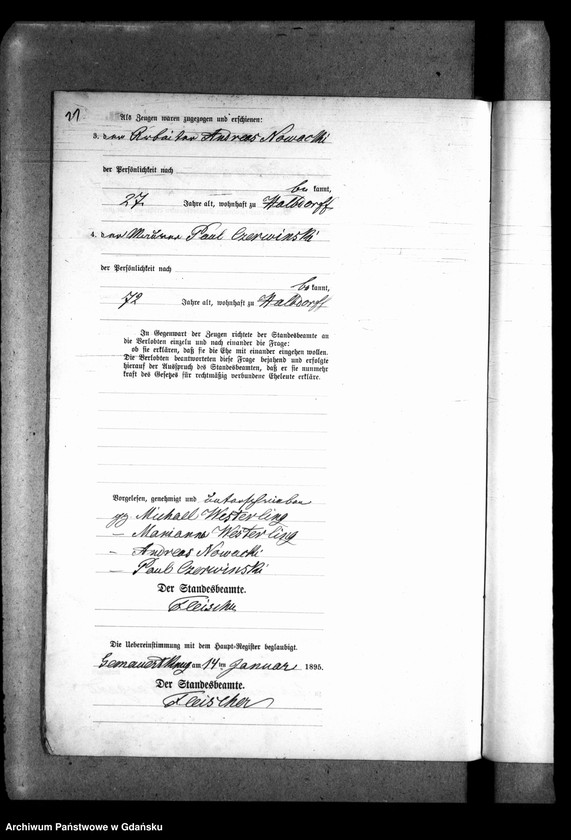 Als Zeugen waren zugezogen und erschienen:
3. der Arbeiter Andreas Nowacki
der Persönlichkeit nach
bekannt,
27 Jahre alt, wohnhaft zu Walddorff
4. der Paul Czerwinski
der Persönlichkeit nach
bekannt,
72 Jahre alt, wohnhaft zu Walddorff
In Gegenwart der Zeugen richtete der Standesbeamte an
die Verlobten einzeln und nach einander die Frage:
ob sie erklären, daß sie die Ehe mit einander eingehen wollen.
Die Verlobten beantworteten diese Frage bejahend und erfolgte
hierauf der Ausspruch des Standesbeamten, daß er sie nunmehr
kraft des Gesetzes für rechtmäßig verbundene Eheleute erkläre.
Vorgelesen, genehmigt und unterschrieben
gez Michall Westerling
— Marianna Westerling
— Andreas Nowacki
— Paul Czerwinski
Der Standesbeamte.
Fleischer
Die Uebereinstimmung mit dem Haupt-Register beglaubigt.
am 14 ten Januar 1895.
Der Standesbeamte.
Fleischer
Archiwum Państwowe w Gdańsku